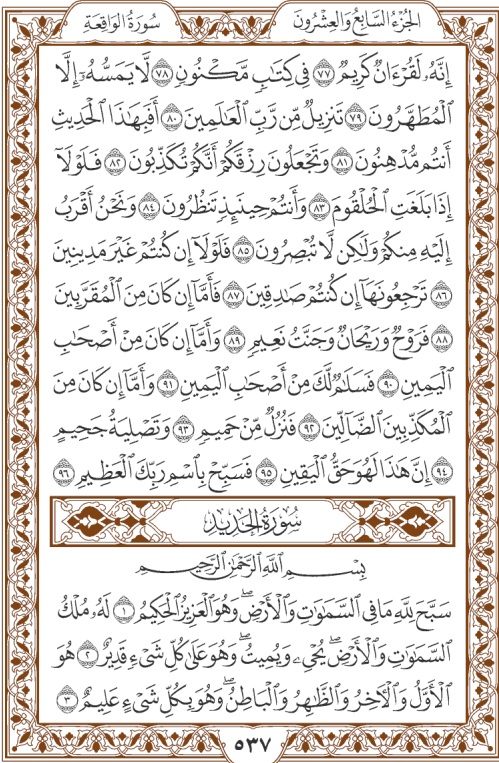 الجزء السابع والعشرون سورة الواقعة
إِنَّهُۥ لَقُرْءَانٌ كَرِيمٌ ٧٧ فِى كِتَٰبٍ مَّكْنُونٍ ٧٨ لَّا يَمَسُّهُۥٓ إِلَّا
ٱلْمُطَهَّرُونَ ٧٩ تَنزِيلٌ مِّن رَّبِّ ٱلْعَٰلَمِينَ ٨٠ أَفَبِهَٰذَا ٱلْحَدِيثِ
أَنتُم مُّدْهِنُونَ ٨١ وَتَجْعَلُونَ رِزْقَكُمْ أَنَّكُمْ تُكَذِّبُونَ ٨٢ فَلَوْلَآ
إِذَا بَلَغَتِ ٱلْحُلْقُومَ ٨٣ وَأَنتُمْ حِينَئِذٍ تَنظُرُونَ ٨٤ وَنَحْنُ أَقْرَبُ
إِلَيْهِ مِنكُمْ وَلَٰكِن لَّا تُبْصِرُونَ ٨٥ فَلَوْلَآ إِن كُنتُمْ غَيْرَ مَدِينِينَ
٨٦ تَرْجِعُونَهَآ إِن كُنتُمْ صَٰدِقِينَ ٨٧ فَأَمَّآ إِن كَانَ مِنَ ٱلْمُقَرَّبِينَ
٨٨ فَرَوْحٌ وَرَيْحَانٌ وَجَنَّتُ نَعِيمٍ ٨٩ وَأَمَّآ إِن كَانَ مِنْ أَصْحَٰبِ
ٱلْيَمِينِ ٩٠ فَسَلَٰمٌ لَّكَ مِنْ أَصْحَٰبِ ٱلْيَمِينِ ٩١ وَأَمَّآ إِن كَانَ مِنَ
ٱلْمُكَذِّبِينَ ٱلضَّآلِّينَ ٩٢ فَنُزُلٌ مِّنْ حَمِيمٍ ٩٣ وَتَصْلِيَةُ جَحِيمٍ
٩٤ إِنَّ هَٰذَا لَهُوَ حَقُّ ٱلْيَقِينِ ٩٥ فَسَبِّحْ بِٱسْمِ رَبِّكَ ٱلْعَظِيمِ ٩٦
سُورَةُ الحَدِيدِ
بِسْمِ ٱللَّهِ ٱلرَّحْمَٰنِ ٱلرَّحِيمِ
سَبَّحَ لِلَّهِ مَا فِى ٱلسَّمَٰوَٰتِ وَٱلْأَرْضِ ۖ وَهُوَ ٱلْعَزِيزُ ٱلْحَكِيمُ ١ لَهُۥ مُلْكُ
ٱلسَّمَٰوَٰتِ وَٱلْأَرْضِ ۖ يُحْىِۦ وَيُمِيتُ ۖ وَهُوَ عَلَىٰ كُلِّ شَىْءٍ قَدِيرٌ ٢ هُوَ
ٱلْأَوَّلُ وَٱلْءَاخِرُ وَٱلظَّٰهِرُ وَٱلْبَاطِنُ ۖ وَهُوَ بِكُلِّ شَىْءٍ عَلِيمٌ ٣
٥٣٧